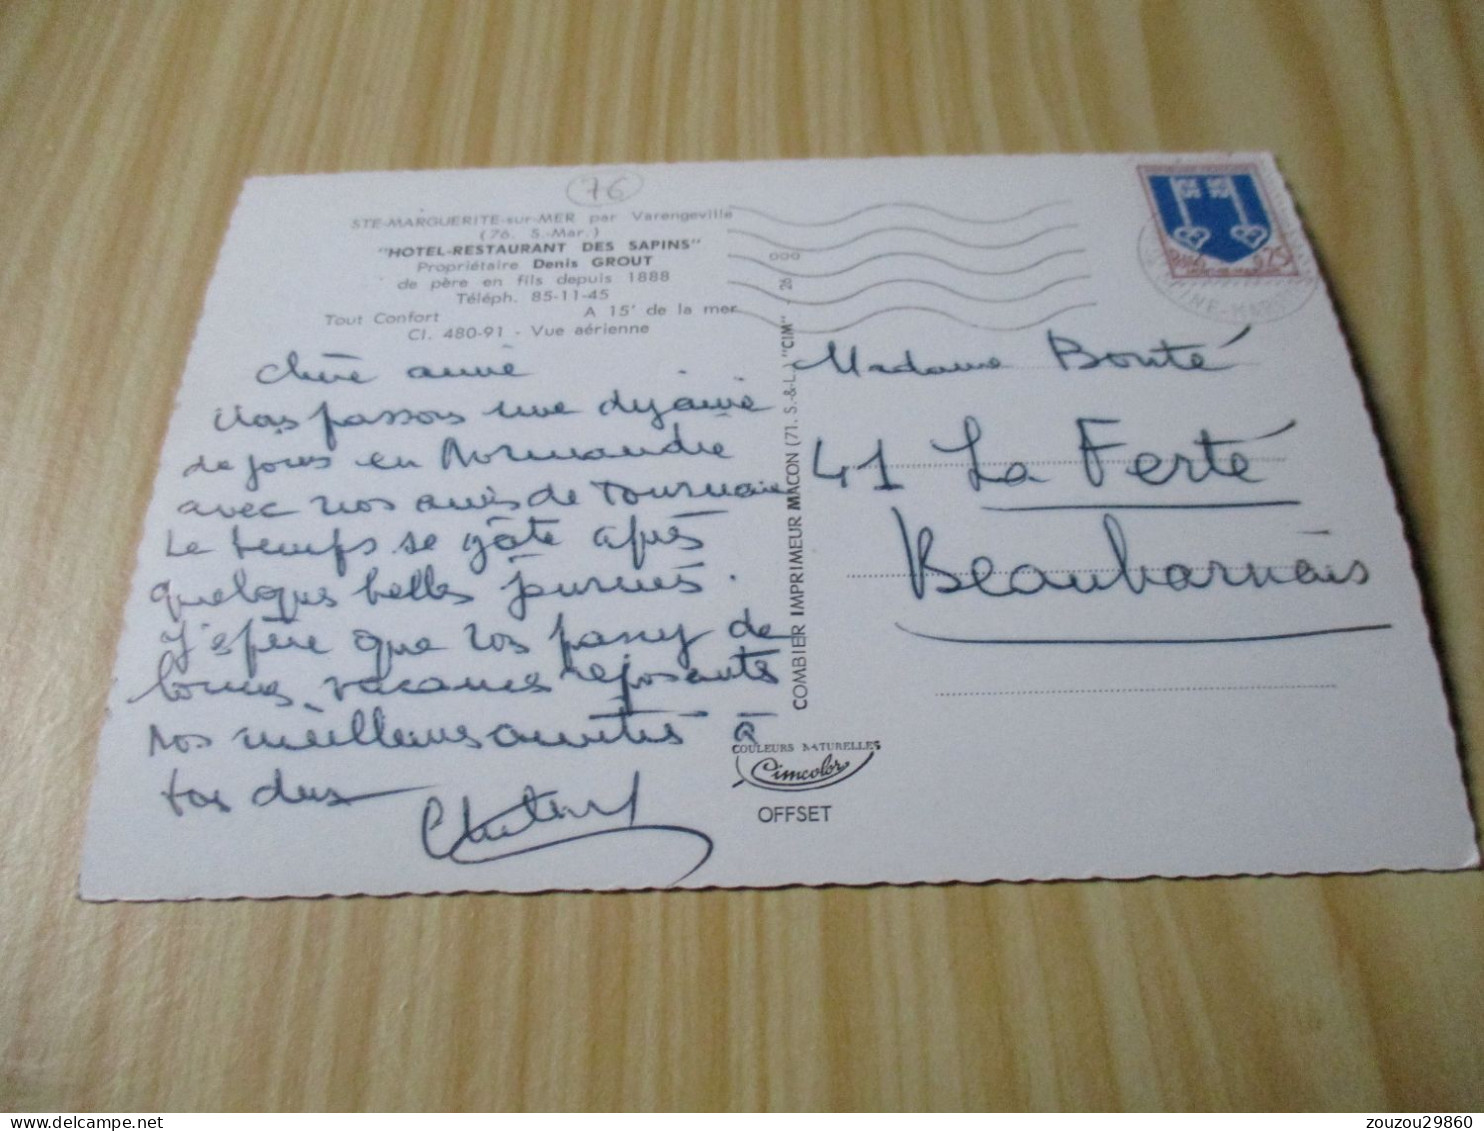 76
STE-MARGUERITE-sur-MER par Varengeville
(76. S.-Mar.)
"HOTEL-RESTAURANT DES SAPINS"
Propriétaire Denis GROUT
de père en fils depuis 1888
Téléph. 85-11-45
Tout Confort A 15' de la mer
CI. 480-91 - Vue aérienne
Chère amie
Nous passons une dizaine
de jours en Normandie
avec nos amis de
Le temps se gâte après
quelques belles journées.
J'espère que vos passez de
bonnes vacances reposantes
nos meilleures amitiés à
tous deux
COMBIER IMPRIMEUR MACON (71. S.-&-L.) "CIM"
COULEURS NATURELLES
Cimcolor
OFFSET
Madame Bonté
41 La Ferté
Beauharnais
zouzou29860